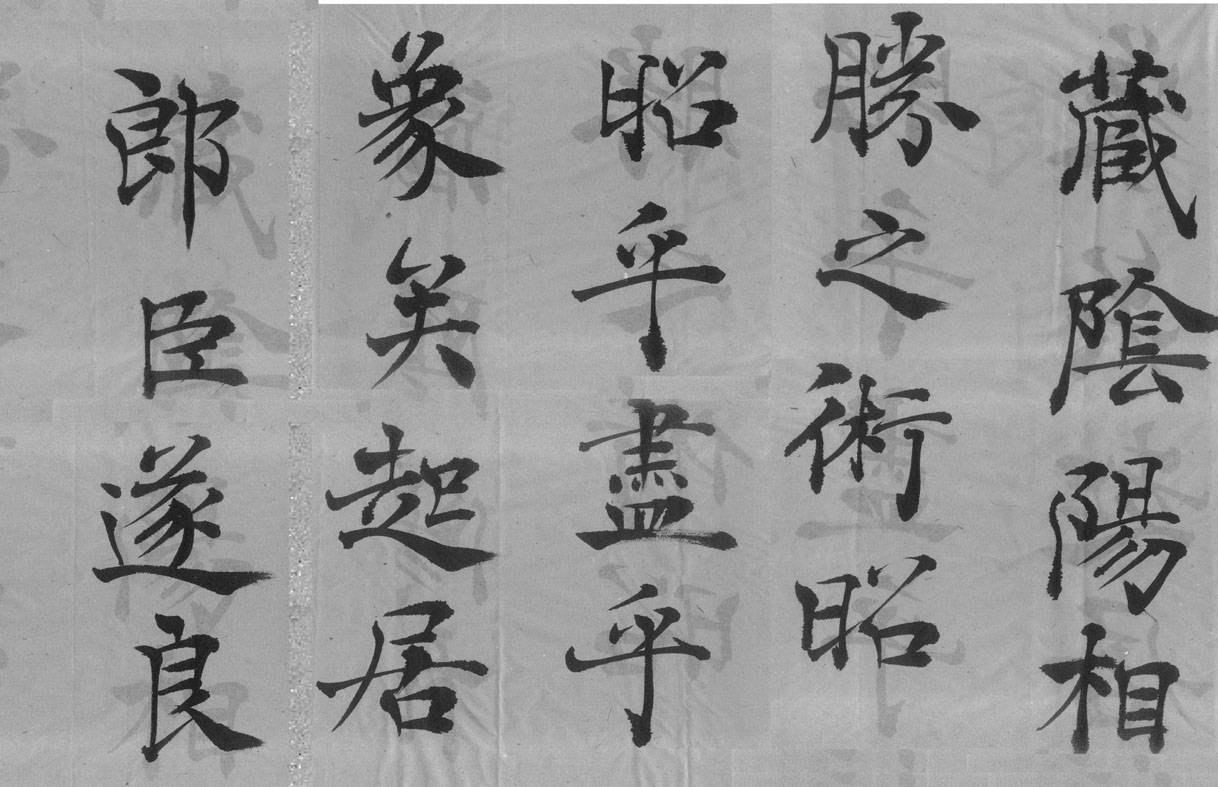 藏陰陽相
勝之術昭
昭乎盡乎
象矣起居
郎臣遂良